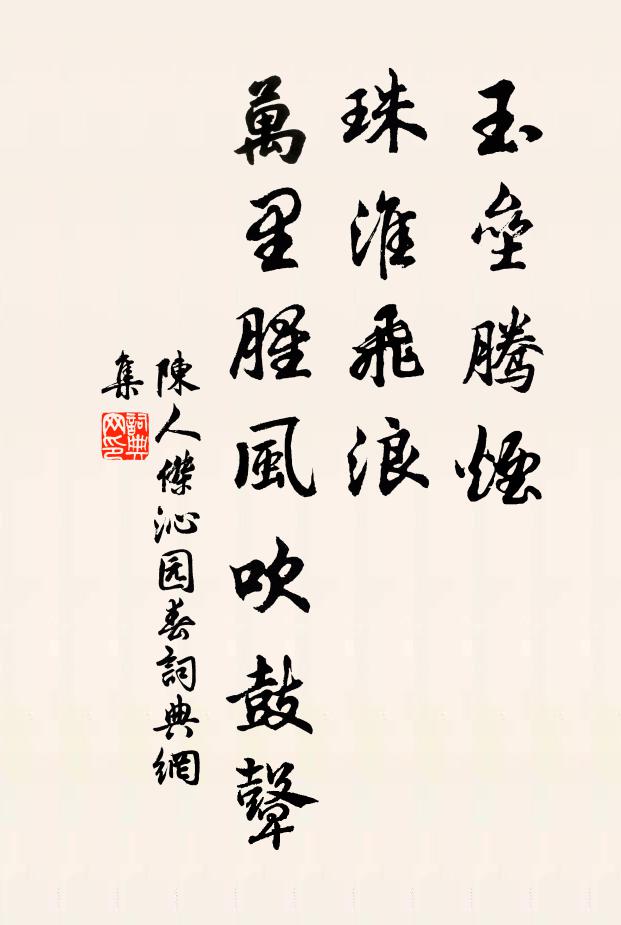 玉垒騰煙
珠淮飛浪
萬里腥風吹鼓鼙
陳人傑沁园春詞典網
集
詞典网印